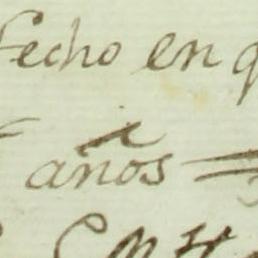 Fecho en q
años =